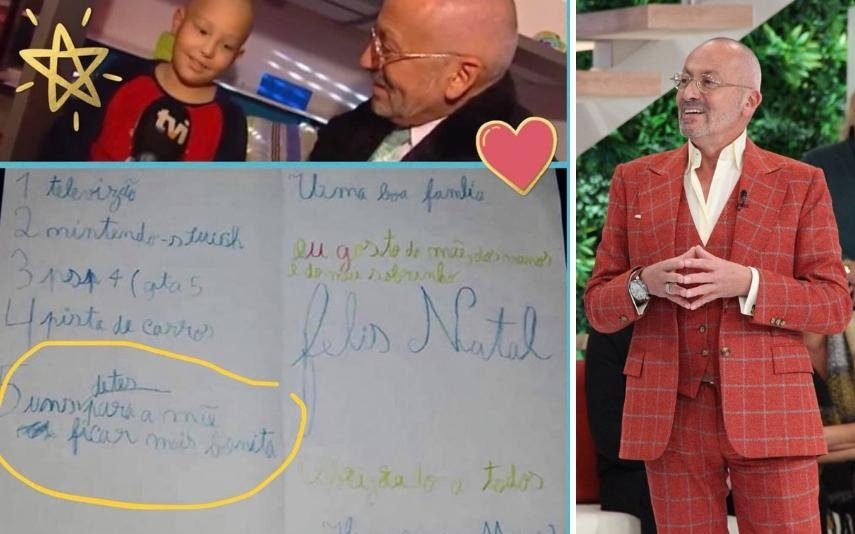 tvi
1 televizão
2 nintendo-stuish
3 psp 4 (gta 5
4 pista de carros
5 uns para a mãe
detes
ficar mais bonita
Uma boa familia
eu gosto da mãe, dos manos
e do meu sobrinho
felis Natal
Obrigado a todos